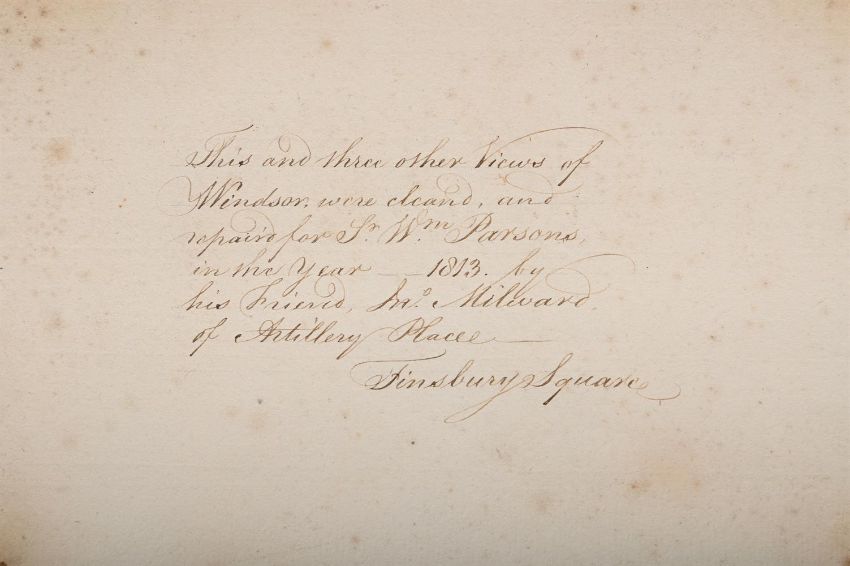 This and three other Views of
Windsor, were cleand, and
repaird for Sr. Wm. Parsons,
in the Year — 1813. by
his Friend, Jno. Milward,
of Artillery Place —
Finsbury Square